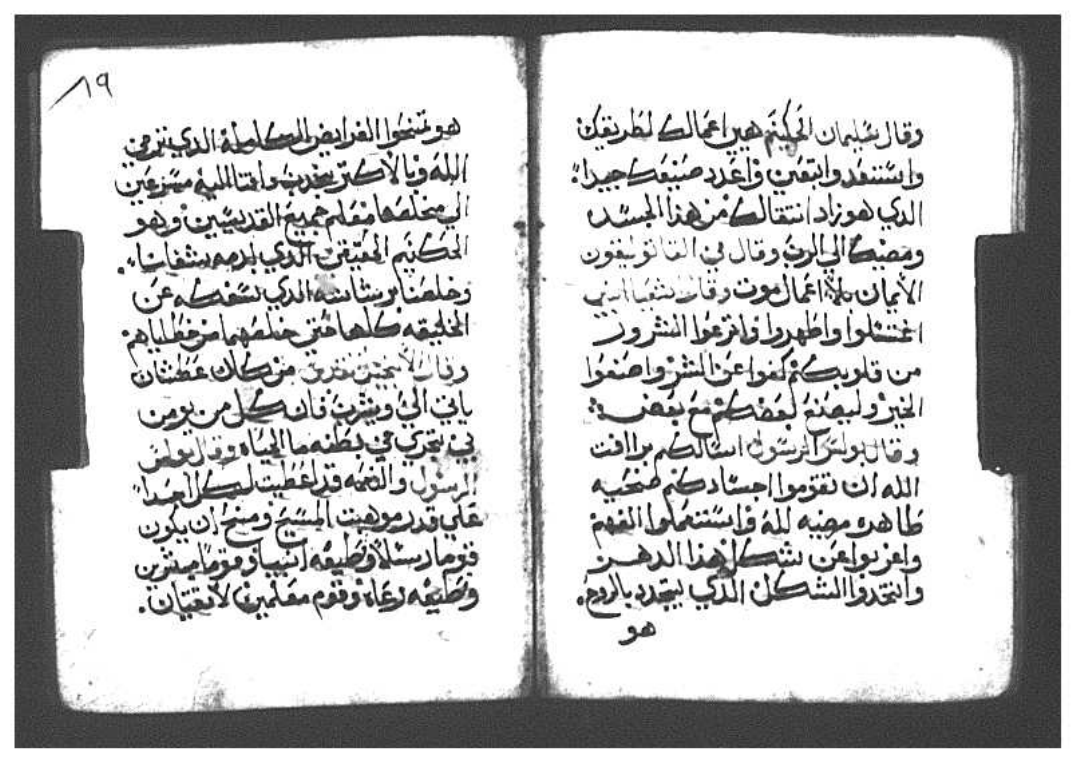 وقال سليمان الحكيم هيي اعمالك لطريقك
واستعد واتيقن واعدد صنيعك جيدا
الذي هو زاد انتقالك من هذا الجسد
ومضيك الي الرب وقال في القاتوليقون
الأيمان بلا اعمال موت وقال شعيا النبي
اغتسلوا واطهروا وانزعوا الشرور
من قلوبكم كفوا عن الشر واصنعوا
الخير وليصنع بعضكم مع بعض
وقال بولس الرسول اسالكم برافت
الله ان تقوموا اجسادكم ضحيه
طاهره مرضيه لله واستعملوا الفهم
عن شكل هذا الدهر
الشكل الذي يتجدد بالروح.
هو
١٩
هو الفرايض الكامله الذي ترضي
الله وبالأكثر
الي مخلصها معلم جميع القديسين وهو
الحكيم الحقيقي الذي لدمه شفانا
وخلصنا الذي سفكه عن
الخليقه كلها حتي خلصها من خطاياهم
وقال من كان عطشان
ياتي الي ويشرب فان كل من يومن
بي تجري في بطنه ما الحياه وقال بولس
الرسول والنعمه قد اعطيت لكل احد
علي قدر موهبت المسيح ومنح ان يكون
قوما رسلا وطيفه انبيا وقوما مبشرين
وطيفه رعاه وقوم معلمين